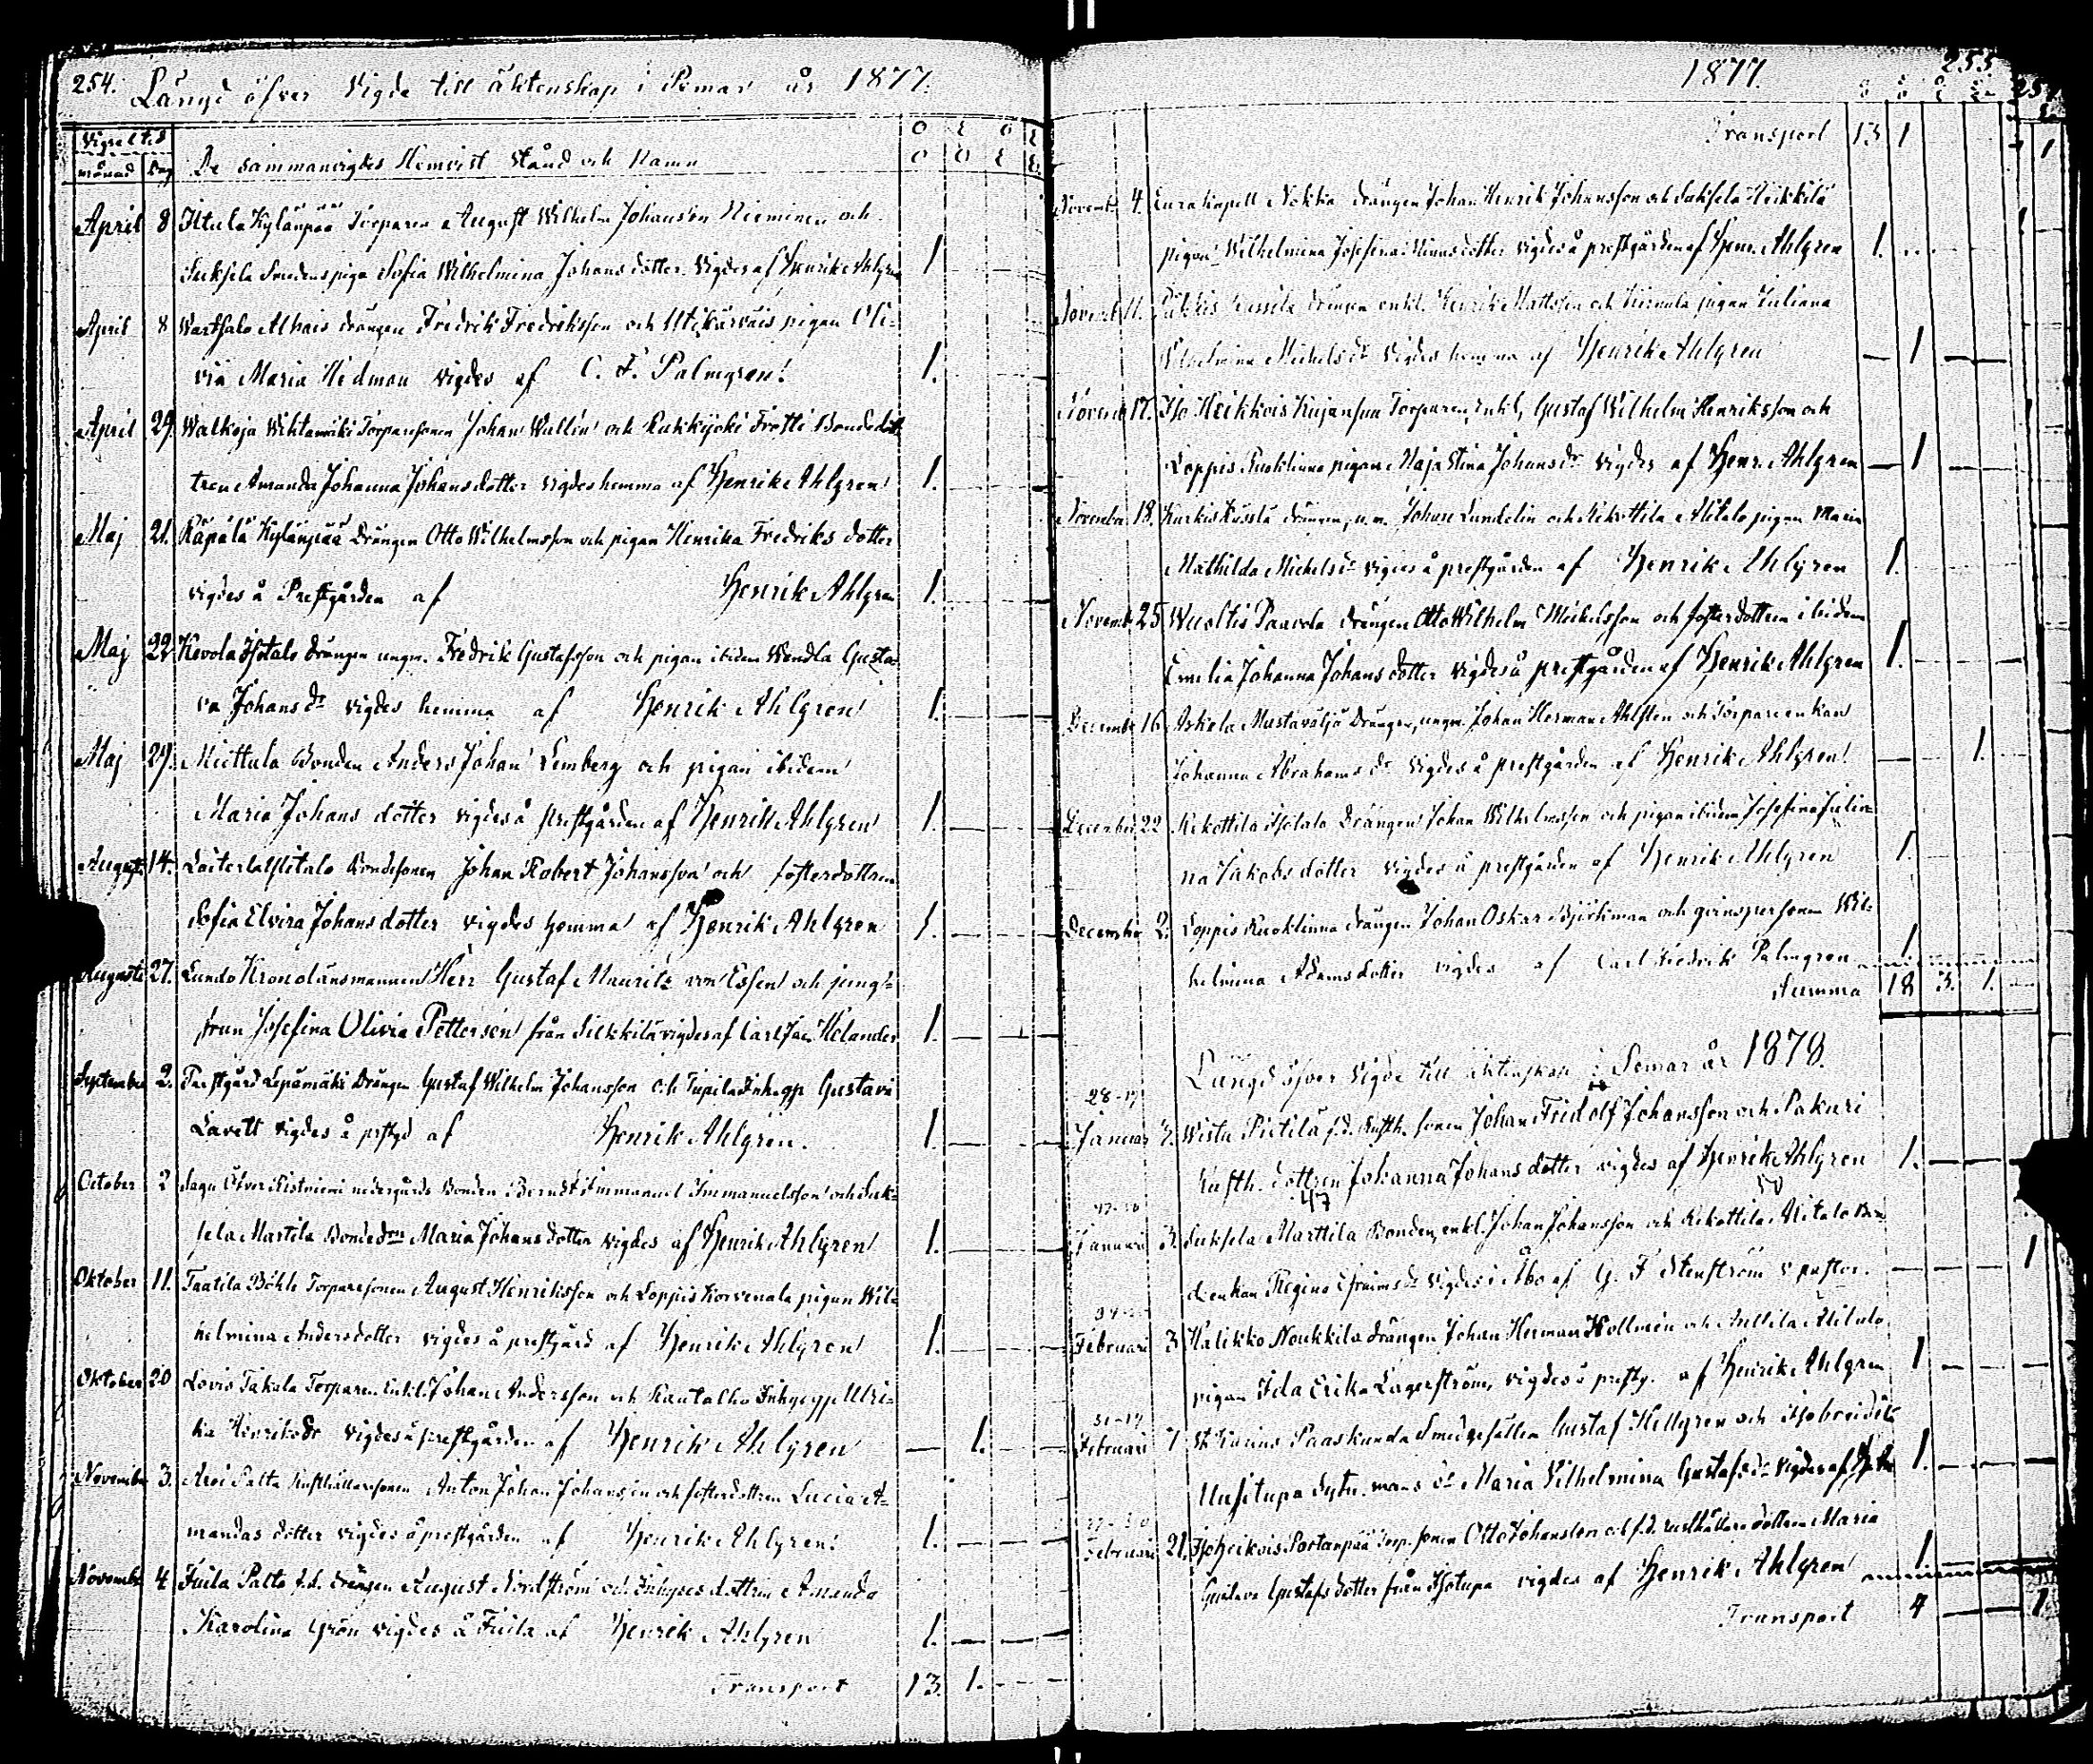 254. Längd öfver Vigde till äktenskap i Pemar år 1877.
Vigseltid
månad Dag De sammanvigdes Hemvist Stånd och Namn
April 8 Kylänpää Torparen August Wilhelm Johansson Nieminen och
piga Sofia Wilhelmina Johans dotter Vigdes af Henrik Ahlgren 1
April 8 drängen Fredrik Fredriksson och pigan Oli-
via Maria Hedman vigdes af C. F. Palmgren. 1.
April 29. Torparesonen Johan Wallin och Bondedot-
tren Amanda Johanna Johansdotter vigdes hemma af Henrik Ahlgren 1.
Maj 21. Räpälä Kylänpää Drängen Otto Wilhelmsson och pigan Henrika Fredriks dotter
vigdes å Prestgården af Henrik Ahlgren 1.
Maj 22. Kevola Isotalo Drängen ungm. Fredrik Gustafsson och pigan ibidem Wendla Gusta-
va Johans dr vigdes hemma af Henrik Ahlgren 1.
Maj 29. Miettula Bonden Anders Johan Lemberg och pigan ibidem
Maria Johans dotter vigdes å prestgården af Henrik Ahlgren 1.
Augusti 14. Bondesonen Johan Robert Johansson och fosterdottren
Sofia Elvira Johans dotter vigdes hemma af Henrik Ahlgren 1.
Augusti 27. Lundo Kronolänsmannen Herr Gustaf Mauritz von Essen och jung-
frun Josefina Olivia Pettersén från vigdes af Carl Jac. Helander 1.
September 2. Prestgård Lepämäki Drängen Gustaf Wilhelm Johansson och Gustava
Lavett vigdes å af Henrik Ahlgren. 1.
October 2 Sagu nedergårds Bonden Berndt Immanuel Immanuelsson och Suk-
sela Martila Maria Johansdotter vigdes af Henrik Ahlgren 1.
Oktober 11. Taatila Böhle Torparesonen August Henriksson och Loppis Korvenala pigan Wil-
helmina Andersdotter vigdes å prestgård af Henrik Ahlgren 1.
Oktober 20 Takala Torparen Enkl. Johan Andersson och Ulri-
ka Henriksdr Vigdes å prestgården af Henrik Ahlgren — 1.
November 3. Rusthållaresonen Anton Johan Johansson och fosterdottren Lucia A-
mandas dotter vigdes å prestgården af Henrik Ahlgren. 1.
November 4. Fuila Palto f.d. drängen August Nordström och Inhyses dottren Amanda
Karolina Grön vigdes å Fuila af Henrik Ahlgren 1.
Transport 13. 1.
1877. 255
Transport 13 1
Novemb. 4. Eura Kapell Nokkia drängen Johan Henrik Johansson och Suksela Heikkilä
pigan Wilhelmina Josefina vigdes å prestgården af Henr. Ahlgren 1.
Novemb. 11. drängen enkl. Henrik Mattsson och pigan Juliana
Wilhelmina Michels dr vigdes hemma af Henrik Ahlgren — 1
Novemb 17. Iso Heikkois Kujanpaa Torparen, Enkl, Gustaf Wilhelm Henriksson och
Loppis Ruoklinna pigan Maja Stina Johans dr vigdes af Henr. Ahlgren — 1
November 18. drängen, u.m. Johan Lundelin och Rekottila Alitalo pigan Maria
Mathilda Michelsdr vigdes å prestgården af Henrik Ahlgren 1.
Novemb 25 Wuoltis Paavola drängen Otto Wilhelm Mickelsson och fosterdottren ibidem
Emelia Johanna Johansdotter vigdes å prestgården af Henrik Ahlgren 1.
December 16 Askala Drängen, ungm. Johan Herman Ahlsten och Torpareenkan
Johanna Abrahams dr vigdes å prestgården af Henrik Ahlgren — 1.
December 22 Rekottila Isotalo Drängen Johan Wilhelmsson och pigan ibidem Josefina Julia-
na Jakobs dotter vigdes å prestgården af Henrik Ahlgren 1.
December 2. Loppis Ruoklinna drängen Johan Oskar Björkman och qvinspersonen Wil-
helmina Adams dotter vigdes af Carl Fredrik Palmgren 1.
Summa 18 3. 1.
Längd öfver Vigde till äktenskap i Pemar år 1878.
28-17
Januari 3. Wista Pietilä f.d. Rusth. sonen Johan Fridolf Johansson och Pakuri
Rusth. dottren Johanna Johans dotter vigdes af Henrik Ahlgren 1.
47 50
Januari 3. Suksela Marttila Bonden, enkl. Johan Johansson och Rekottila Alitalo Bon-
deenkan Regina Efraims dr vigdes i Åbo af G. F. Stenström v. pastor. — 1
Februari 3 Halikko Noukkila drängen Johan Herman Hollmén och Anttila Alitalo
pigan Ida Erika Lagerström, vigdes å prestg. af Henrik Ahlgren 1
31-17
Februari 7 St Karins Paaskunda Smedgesällen Gustaf Hellgren och
dr Maria Vilhelmina Gustafs dr vigdes af 1.
Februari 21. Isoheikois Portanpää Torp. sonen Otto Johansson och f.d. rusthållare dottren Maria
Gustava Gustafs dotter från Isotupa vigdes af Henrik Ahlgren 1.
Transport 4 — 1.